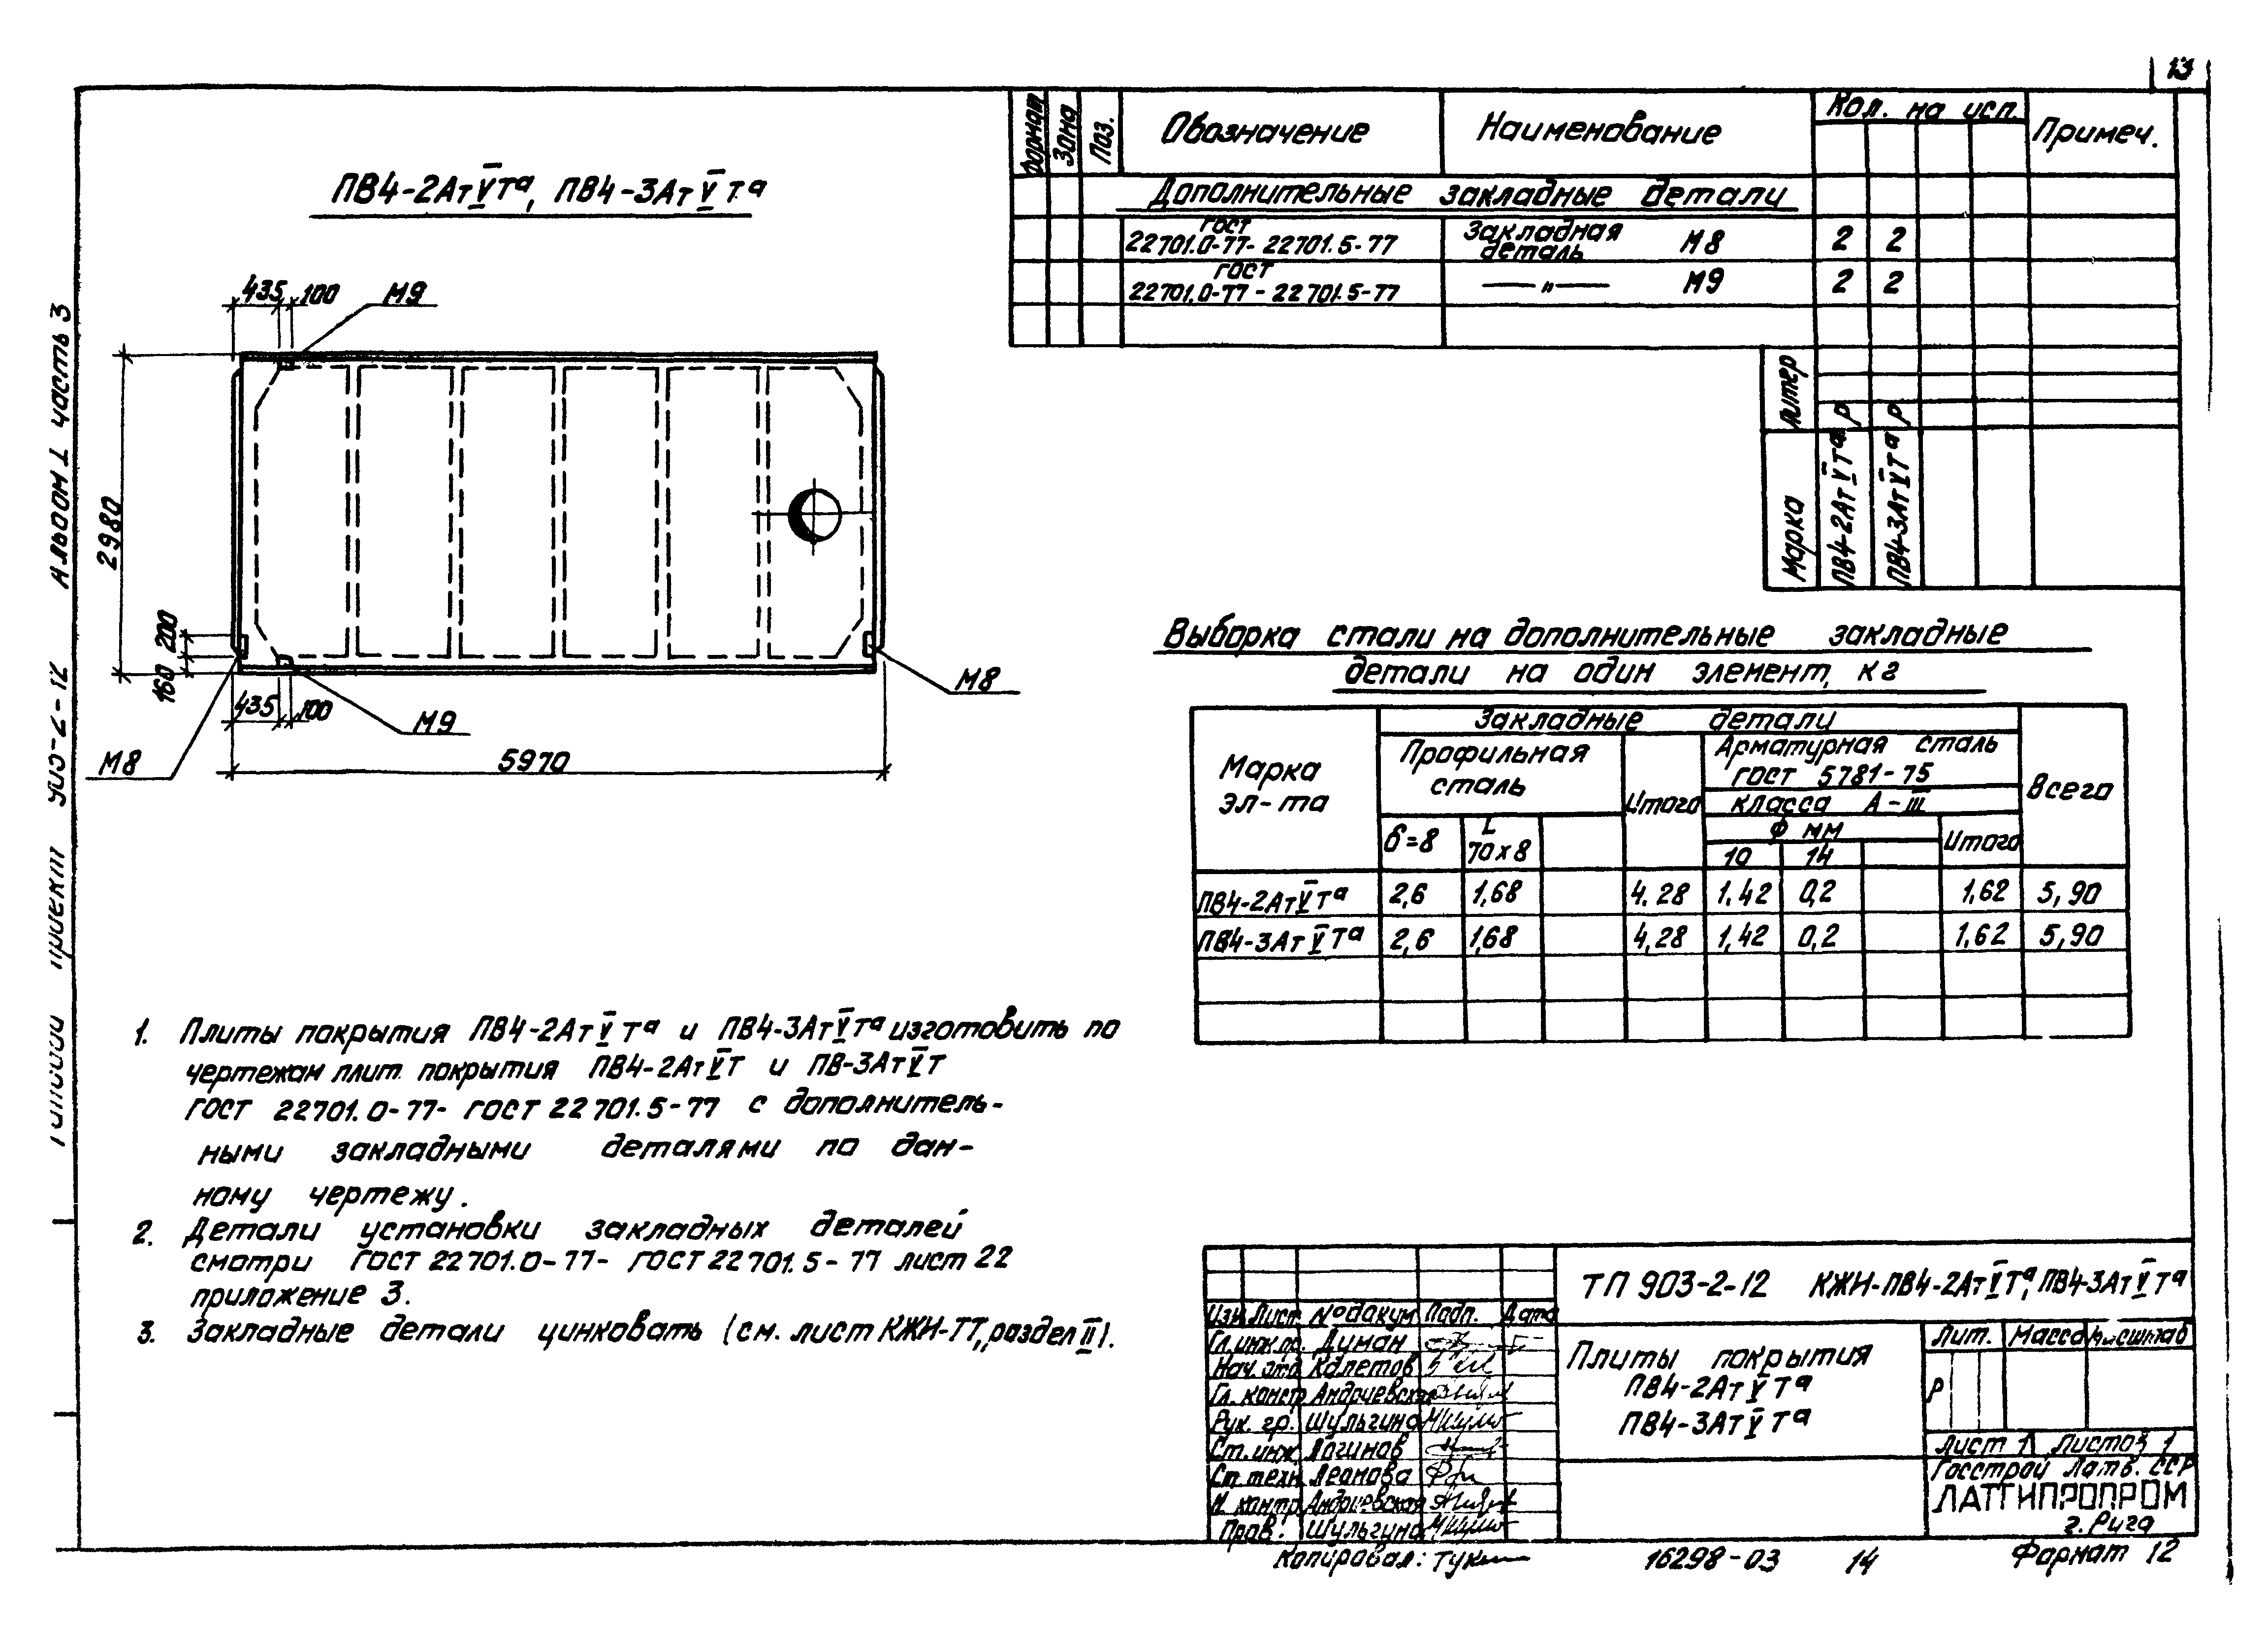 13
ПВ4-2АтV̄Та, ПВ4-3АтV̄Та
435 100 М9
2980
200
160
435 100
М9
М8
М8
5970
Формат Зона Поз. Обозначение Наименование Кол. на исп. Примеч.
Дополнительные закладные детали
ГОСТ
22701.0-77- 22701.5-77 Закладная деталь М8 2 2
ГОСТ
22701.0-77 - 22701.5-77 —"— М9 2 2
Литер Р Р
Марка ПВ4-2АтVТа ПВ4-3АтVТа
Выборка стали на дополнительные закладные
детали на один элемент, кг
Марка эл-та
Закладные детали
Профильная сталь
Итого
Арматурная сталь
ГОСТ 5781-75
класса А-III
Ф мм
Всего
δ=8 L 70х8 10 14 Итого
ПВ4-2АтVТа 2,6 1,68 4.28 1,42 0,2 1,62 5,90
ПВ4-3АтVТа 2,6 1,68 4,28 1,42 0,2 1,62 5,90
1. Плиты покрытия ПВ4-2АтVТа и ПВ4-3АтVТа изготовить по
чертежам плит покрытия ПВ4-2АтVТ и ПВ-3АтVТ
ГОСТ 22701.0-77- ГОСТ 22701.5-77 с дополнитель-
ными закладными деталями по дан-
ному чертежу.
2. Детали установки закладных деталей
смотри ГОСТ 22701.0-77- ГОСТ 22701.5-77 лист 22
приложение 3.
3. Закладные детали цинковать (см. лист КЖИ-ТТ, раздел II).
Альбом I часть 3
903-2-12
Типовой проект
ТП 903-2-12 КЖИ-ПВ4-2АтVТа, ПВ4-3АтVТа
Изм. Лист №докум Подп. Дата
Гл.инж.пр. Диман
Нач. отд Калетов
Гл. констр Андриевская
Рук. гр. Шульгина
Ст. инж Логинов
Ст. техн Леонова
Н. контр. Андриевская
Пров. Шульгина
Плиты покрытия
ПВ4-2АтVТа
ПВ4-3АтVТа
Лит. Масса Масштаб
Р
Лист 1 Листов 1
Госстрой Латв. ССР
ЛАТГИПРОПРОМ
г. Рига
Копировал:
16298-03 14
Формат 12